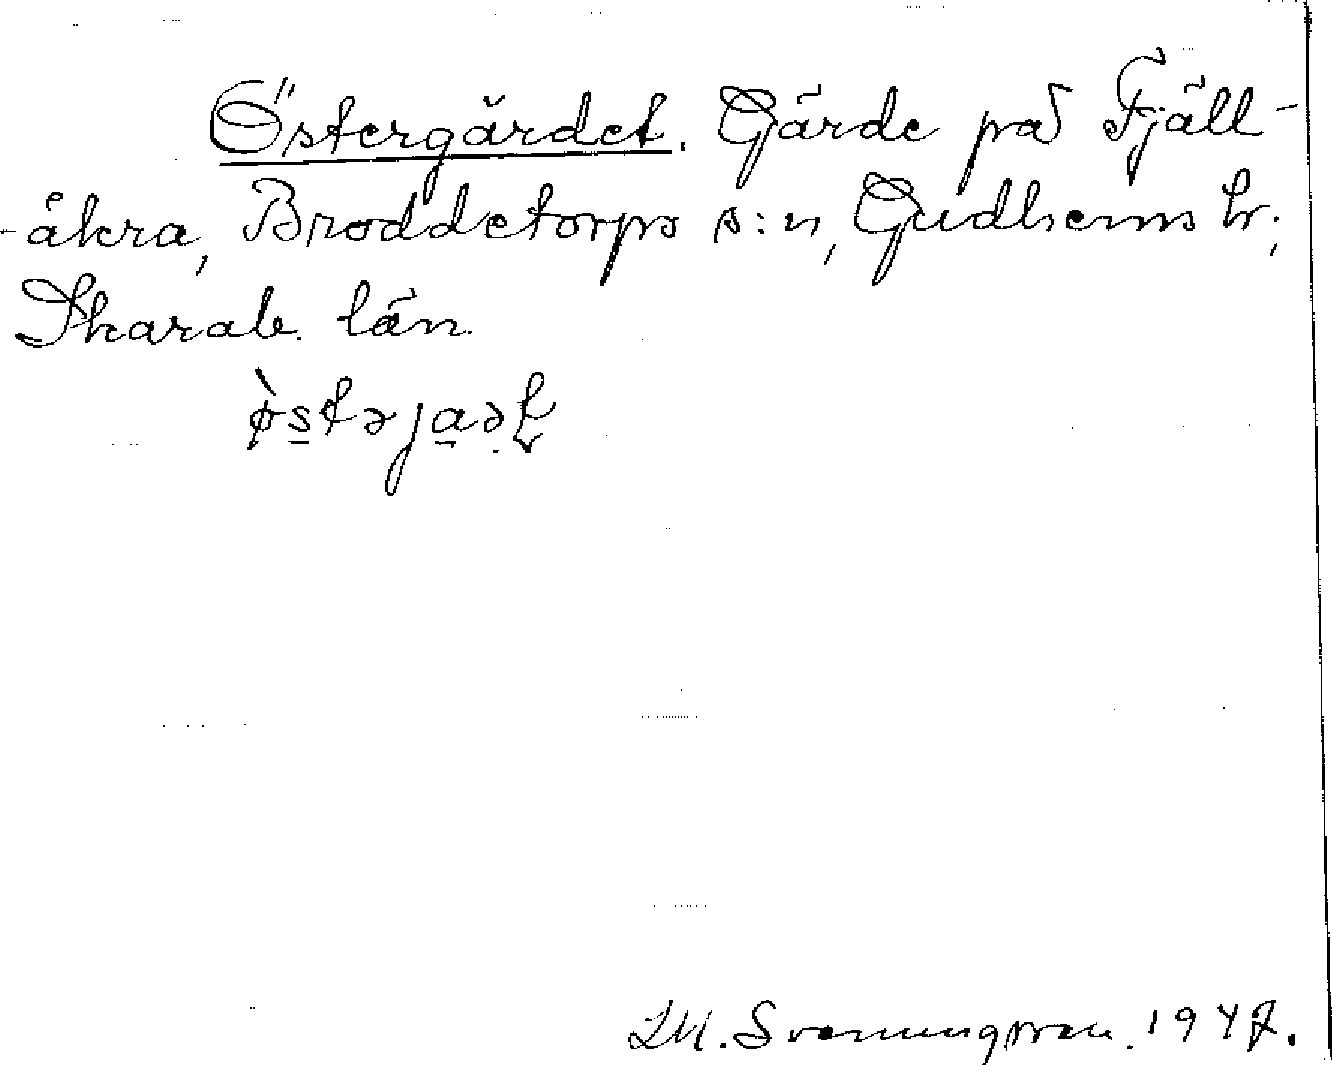 Östergärdet. Gärde på Fjäll-
-åkra, Broddetorps s:n, Gudhems hr,
Skarab. län.
ø̀s̲təja̲ət
M. Svenungsson. 1947.